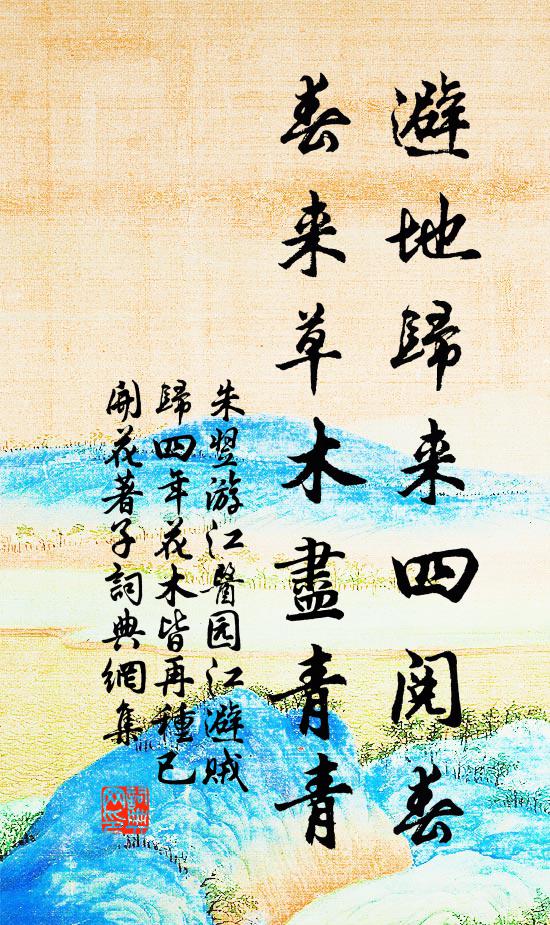 避地歸来四閱春
春来草木盡青青
朱翌游江醫园江避贼
歸四年花木皆再種已
開花著子詞典網集